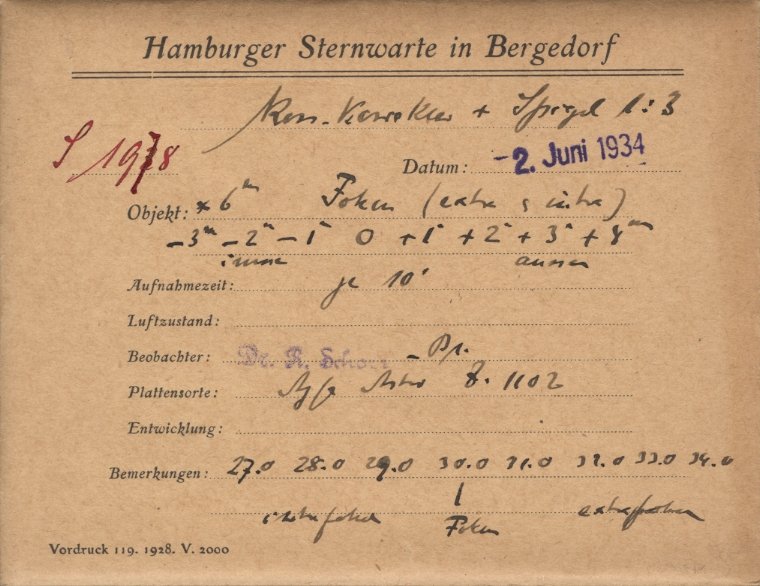 Hamburger Sternwarte in Bergedorf
+ Spiegel 1:3
S 1978
Datum: -2. Juni 1934
Objekt: * 6ᵐ Fokus (extra & intra)
-3ᵐ -2ᵐ -1ᵐ 0 +1ᵐ +2ᵐ +3ᵐ +4ᵐ
innen aussen
Aufnahmezeit: je 10'
Luftzustand:
Beobachter: Dr. R. Schorr -
Plattensorte: Agfa Astro 1102
Entwicklung:
Bemerkungen: 27.0 28.0 29.0 30.0 31.0 32.0 33.0 34.0
intrafokal Fokus extrafokal
Vordruck 119. 1928. V. 2000